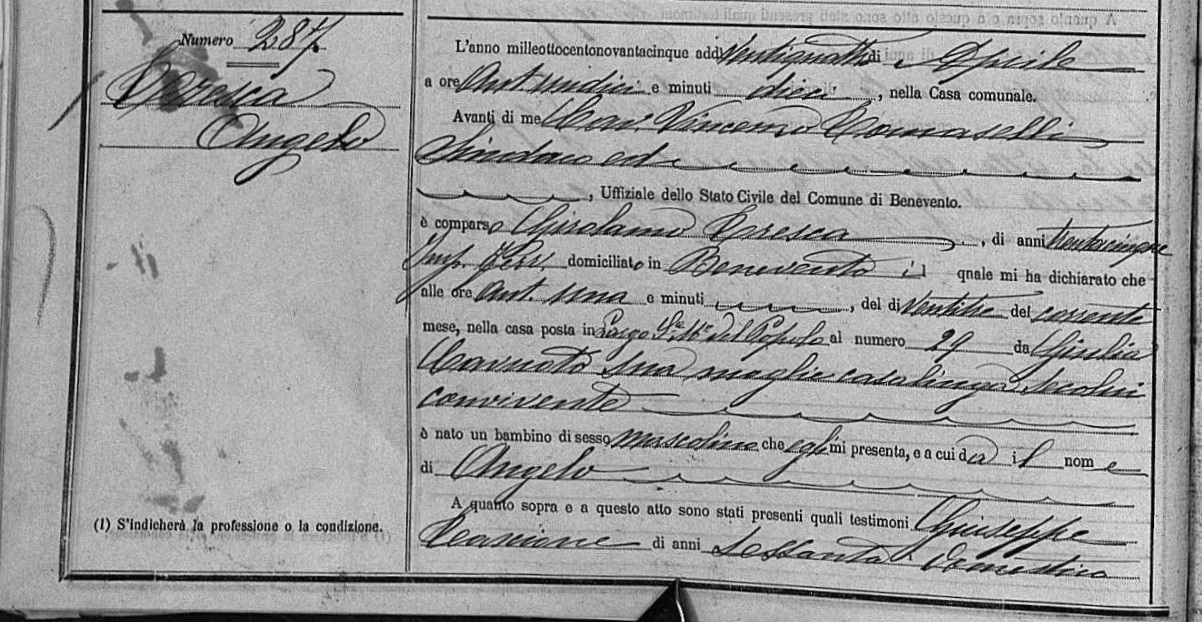 Numero 287
Cresca
Angelo
(1) S'indicherà la professione o la condizione.
L'anno milleottocentonovantacinque addì Ventiquattro di Aprile
a ore Ant. undici e minuti dieci, nella Casa comunale.
Avanti di me Cav. Vincenzo Tomaselli
Sindaco ed
, Uffiziale dello Stato Civile del Comune di Benevento.
è comparso Girolamo Cresca, di anni trentacinque
Imp. Ferr. domiciliato in Benevento il quale mi ha dichiarato che
alle ore Ant. una e minuti, del dì Ventitre del corrente
mese, nella casa posta in Largo S.ta M.a del Popolo al numero 29 da Giulia
sua moglie casalinga seco lui
convivente
è nato un bambino di sesso mascolino che egli mi presenta, e a cui dà il nome
di Angelo
A quanto sopra e a questo atto sono stati presenti quali testimoni Giuseppe
di anni Sessanta Domestico